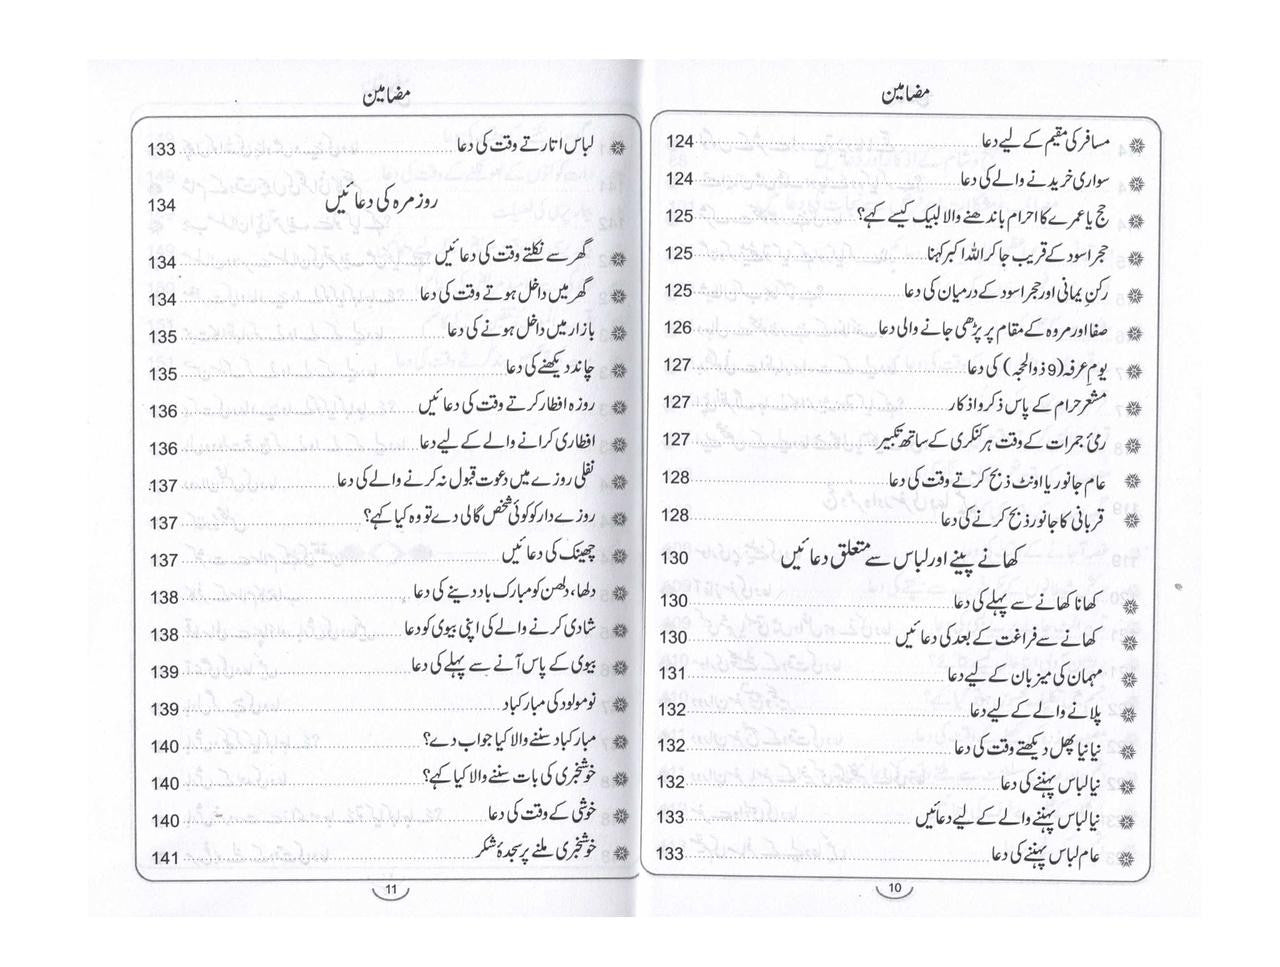 مضامین
مسافر کی مقیم کے لیے دعا 124
سواری خریدنے والے کی دعا 124
حج یا عمرے کا احرام باندھنے والا لبیک کیسے کہے؟ 125
حجر اسود کے قریب جا کر اللہ اکبر کہنا 125
رکنِ یمانی اور حجر اسود کے درمیان کی دعا 125
صفا اور مروہ کے مقام پر پڑھی جانے والی دعا 126
یومِ عرفہ (9 ذوالحجہ) کی دعا 127
مشعر حرام کے پاس ذکر و اذکار 127
رمیٔ جمرات کے وقت ہر کنکری کے ساتھ تکبیر 127
عام جانور یا اونٹ ذبح کرتے وقت کی دعا 128
قربانی کا جانور ذبح کرنے کی دعا 128
کھانے پینے اور لباس سے متعلق دعائیں 130
کھانا کھانے سے پہلے کی دعا 130
کھانے سے فراغت کے بعد کی دعائیں 130
مہمان کی میزبان کے لیے دعا 131
پلانے والے کے لیے دعا 132
نیا نیا پھل دیکھتے وقت کی دعا 132
نیا لباس پہننے کی دعا 132
نیا لباس پہننے والے کے لیے دعائیں 133
عام لباس پہننے کی دعا 133
10
مضامین
لباس اتارتے وقت کی دعا 133
روزمرہ کی دعائیں 134
گھر سے نکلتے وقت کی دعائیں 134
گھر میں داخل ہوتے وقت کی دعا 134
بازار میں داخل ہونے کی دعا 135
چاند دیکھنے کی دعا 135
روزہ افطار کرتے وقت کی دعائیں 136
افطاری کرانے والے کے لیے دعا 136
نفلی روزے میں دعوت قبول نہ کرنے والے کی دعا 137
روزے دار کو کوئی شخص گالی دے تو وہ کیا کہے؟ 137
چھینک کی دعائیں 137
دلھا، دلھن کو مبارک باد دینے کی دعا 138
شادی کرنے والے کی اپنی بیوی کو دعا 138
بیوی کے پاس آنے سے پہلے کی دعا 139
نومولود کی مبارکباد 139
مبارکباد سننے والا کیا جواب دے؟ 140
خوشخبری کی بات سننے والا کیا کہے؟ 140
خوشی کے وقت کی دعا 140
خوشخبری ملنے پر سجدۂ شکر 141
11